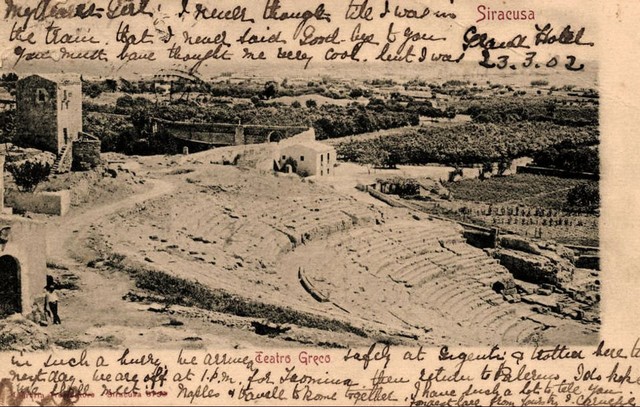 My dear Girl. I never thought till I was in
Siracusa
the train that I never said Good-bye to you
Grand Hotel
You must have thought me very cool, but I was
23.3.02
in such a hurry. We arrived
Teatro Greco
safely at Girgenti & trotted here to
next day, we are off at 1 P.M. for Taormina, then return to Palermo. I do hope
Siracusa
you shall meet in Naples & travel to Rome together. I have such a lot to tell you
fondest love from yours